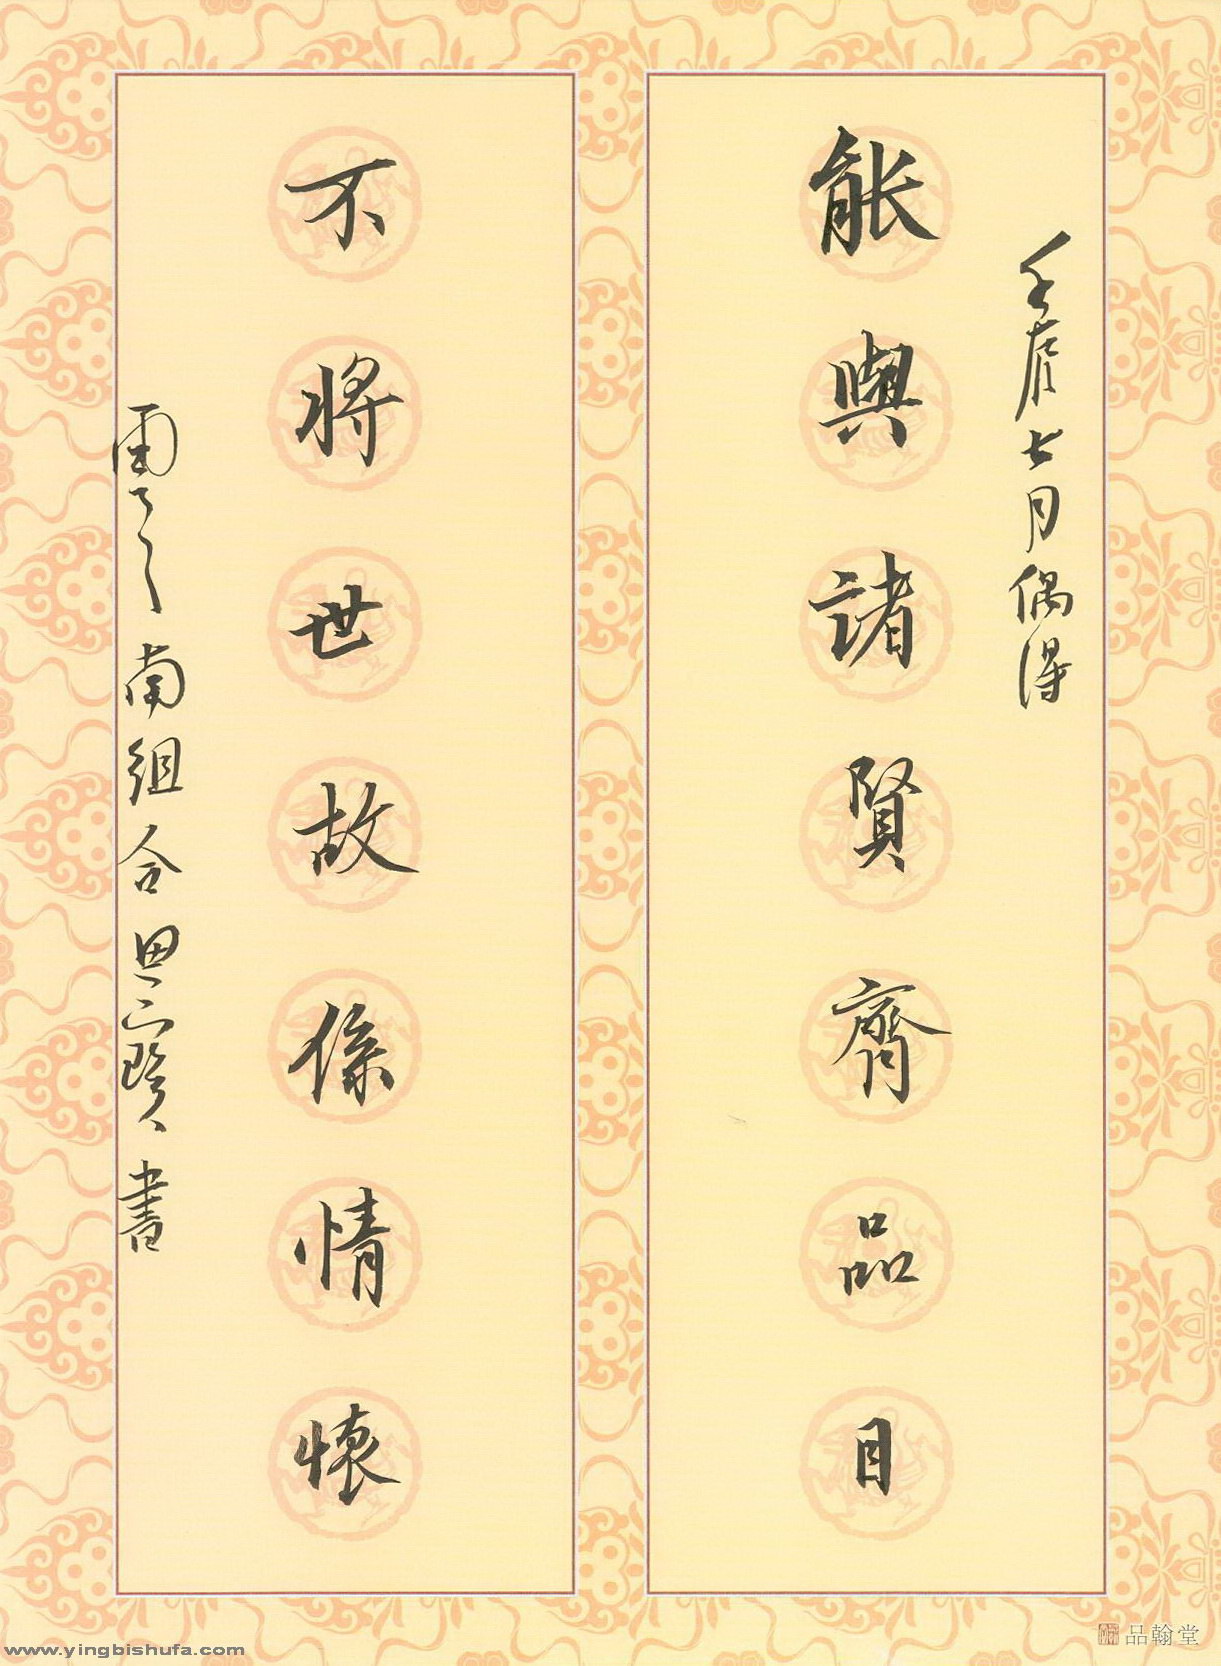 壬七月偶得
能與諸賢齊品目
不將世故係情懷
雲之南組合思寶書
品翰堂
www.yingbishufa.com